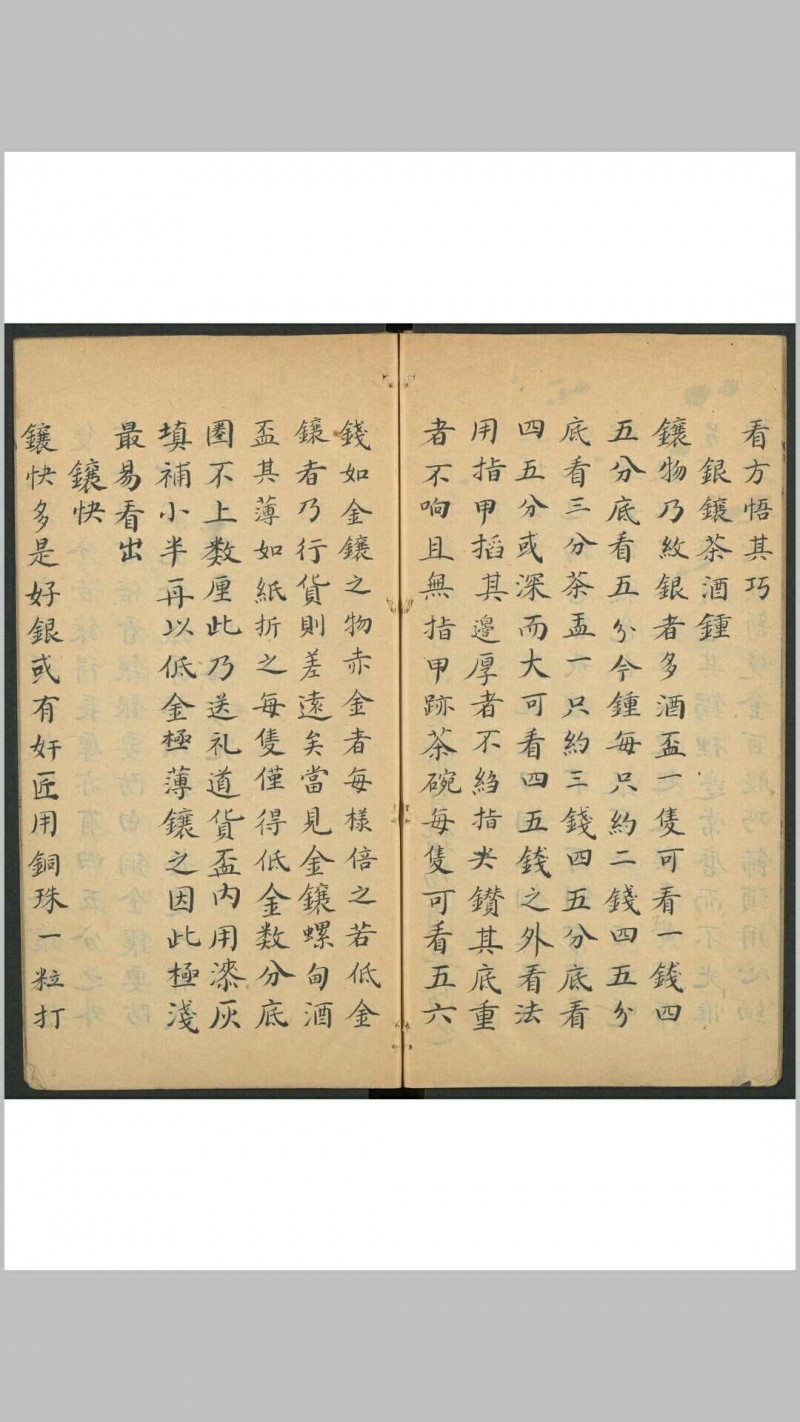 看方悟其巧
銀鑲茶酒鍾
鑲物乃紋銀者多酒盃一隻可看一錢四
五分底看五分今鍾每只約二錢四五分
底看三分茶盂一只約三錢四五分底看
四五分或深而大可看四五錢之外看法
用指甲搯其邊厚者不縐指尖鑽其底重
者不响且無指甲跡茶碗每隻可看五六
錢如金鑲之物赤金者每樣倍之若低金
鑲者乃行貨則差遠矣當見金鑲螺甸酒
盃其薄如紙折之每隻僅得低金数分底
圈不上数厘此乃送礼道貨盃内用漆灰
填補小半再以低金極薄鑲之因此極淺
最易看出
鑲快
鑲快多是好銀或有奸匠用銅珠一粒打